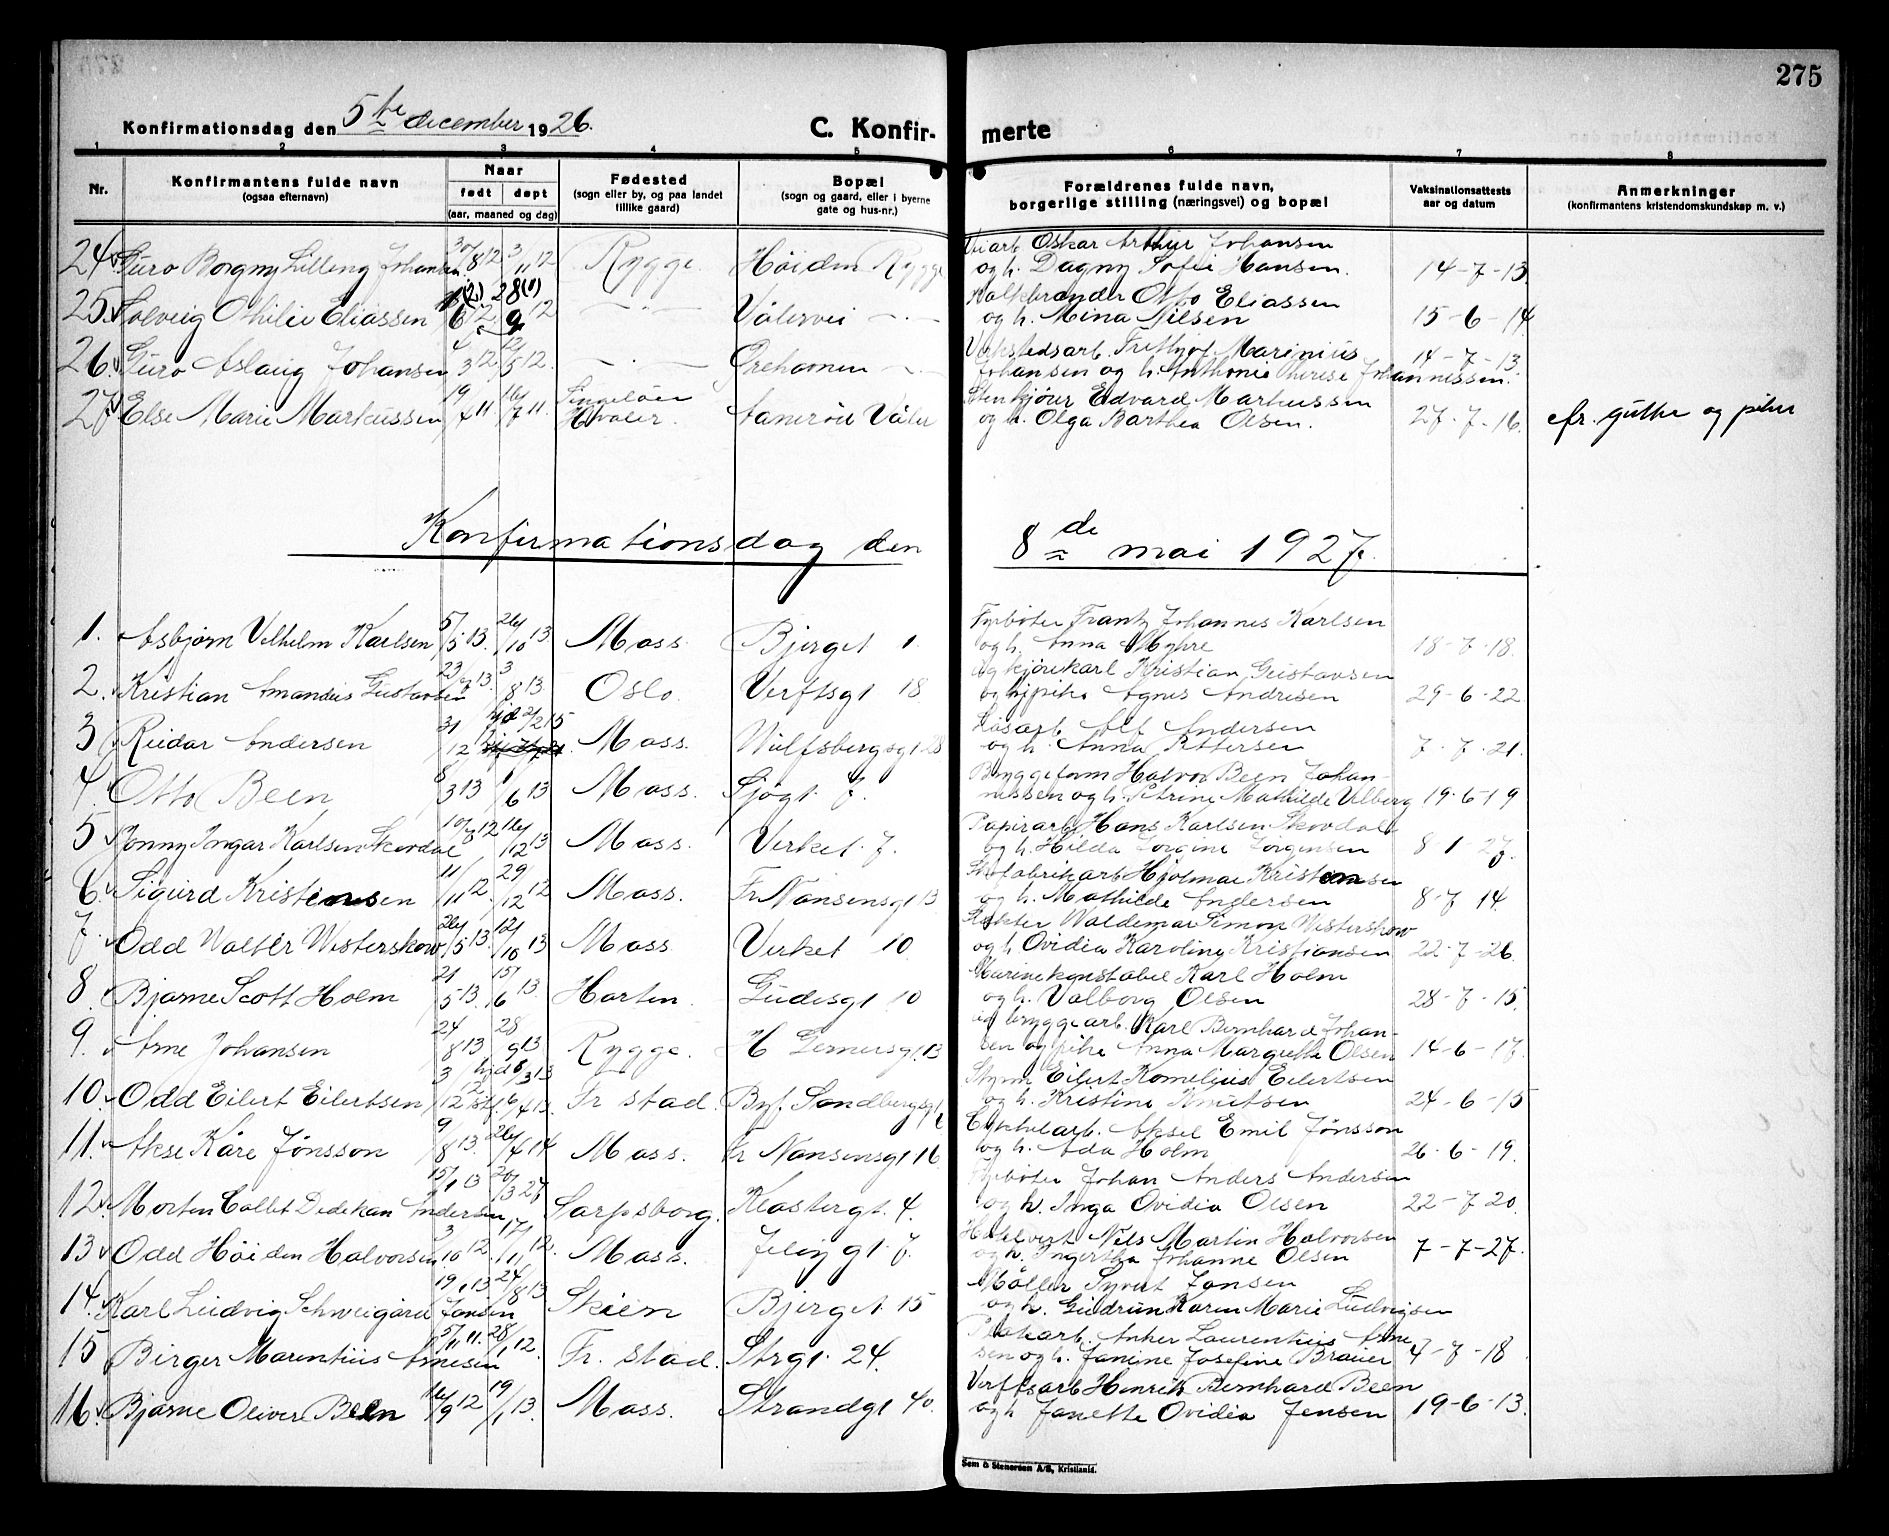 275
Konfirmationsdag den 5te december 1926.
C. Konfir- merte
1 2 3 4 5 6 7 8
Nr. Konfirmantens fulde navn (ogsaa efternavn) Naar født døpt (aar, maaned og dag) Fødested (sogn eller by, og paa landet tillike gaard) Bopæl (sogn og gaard, eller i byerne gate og hus-nr.) Forældrenes fulde navn, borgerlige stilling (næringsvei) og bopæl Vaksinationsattests aar og datum Anmerkninger (konfirmantens kristendomskundskap m. v.)
24 Guro Borgny Lilleng Johansen 30/8 12 3/11 12 Rygge Höiden Rygge Oskar Arthur Johansen
og h. Dagny Sofie Hansen. 14-7-13
25. Solveig Othilie Eliassen 12 12 Vålervei Kalkbrænder Otto Eliassen
og h. Mina Nilsen 15-6-14
26. Guro Aslaug Johansen 3 12 5 12. Ørehavnen Marinius
Johansen og h. Anthonie Therese Johannessen. 14-7-13
27 Else Marie Markussen 19/7 11 16/7 11. Singelöen Hvaler. Våler Stenkjører Edvard Markussen
og h. Olga Barthea Olsen. 27-7-16.
Konfirmationsdag den 8de mai 1927.
1. Asbjörn Vilhelm Karlsen 5/5 13 26/10 13 Moss Bjerget 1 Fyrböter Frantz Johannes Karlsen
og h. Anna Myhre 18-7-18.
2. Kristian Amandus Gustavsen 23/7 13. 3/8 13 Oslo. Verftsgt 18 ug kjörekarl Kristian Gustavsen
og pike Agnes Andresen 29-6-22
3 Reidar Andersen 31/12 Moss. Wulfsbergsgt 28 Løsarb Alf Andersen
og h. Anna Pettersen 7-7-21.
4. Otto Been 8/3 13 1/6 13 Moss. Sjøgt 7. Bryggeform Halvor Been Johan-
nessen og h. Petrine Mathilde Wilberg 19-6-19
5 Conny Ingar Karlsen Skovdal 10/8 12 26/12 13 Moss. Verket 7. Papirarb Hans Karlsen Skovdal
og h. Hilda Jorgine Jörgensen 8 1 27.
6. Sigurd Kristiansen 11/11 12 29/12 12 Moss. Fr Nansensgt 13 Hjalmar Kristiansen
og h. Mathilde Andersen 8-7 14
7. Odd Walter Westerskow 26/5 13. 12/10 13 Moss Verket 10 Waldemar Simon Westerskow
og h Ovidia Karoline Kristiansen 22-7-26.
8. Bjarne Scott Holm 21/5 13. 15/6 13 Horten. Gudesgt 10 Marinekonstabel Karl Holm
og h. Valborg Olsen 28-7-15.
9. Arne Johansen 24/8 13 28/9 13 Rygge. H Gernersgt. 13 ug bryggearb. Karl Bernhard Johan-
sen og pike Anna Margrethe Olsen 14-6-17.
10. Odd Eilert Eilertsen 3/12 12 hjd 8/3 13 Fr stad. Byf. Sandbergsgt Eilert Kornelius Eilertsen
og h. Kristine Knutsen 24-6-15
11. Akse Kåre Jönsson 9/8 13. 26/4 14 Moss. Fr Nansensgt 16 Aksel Emil Jönsson
og h. Ada Holm 26-6-19.
12. Morten Collet Dedekan Andersen 15/1 13 20/3 27 Sarpsborg. Klostergt. 4. Fyrböter Johan Anders Andersen
og h. Inga Ovidia Olsen 22-7 20.
13 Odd Höiden Halvorsen 3/10 12 17/11 12. Moss. Jeløygt. 7. Nils Martin Halvorsen
og h. Ingertha Johanne Olsen 7-7-27.
14. Karl Ludvig Schweigård Jansen 19/1 13 24/8 13 Skien Bjerget 15 Möller Syvert Jansen
og h. Gudrun Karen Marie Ludvigsen
15 Birger Marentius Arnesen 5/11 11. 28/1 12. Fr. stad. Strgt. 24. Anker Laurentius Arne
sen og h. Janine Josefine Brauer 4-7-18
16. Bjarne Oliver Been 16/9 12 19/1 13. Moss. Strandgt 40. Verftsarb Henrik Bernhard Been
og h Janette Ovidia Jensen 19-6-13.
Sem & Stenersen A/S, Kristiania.